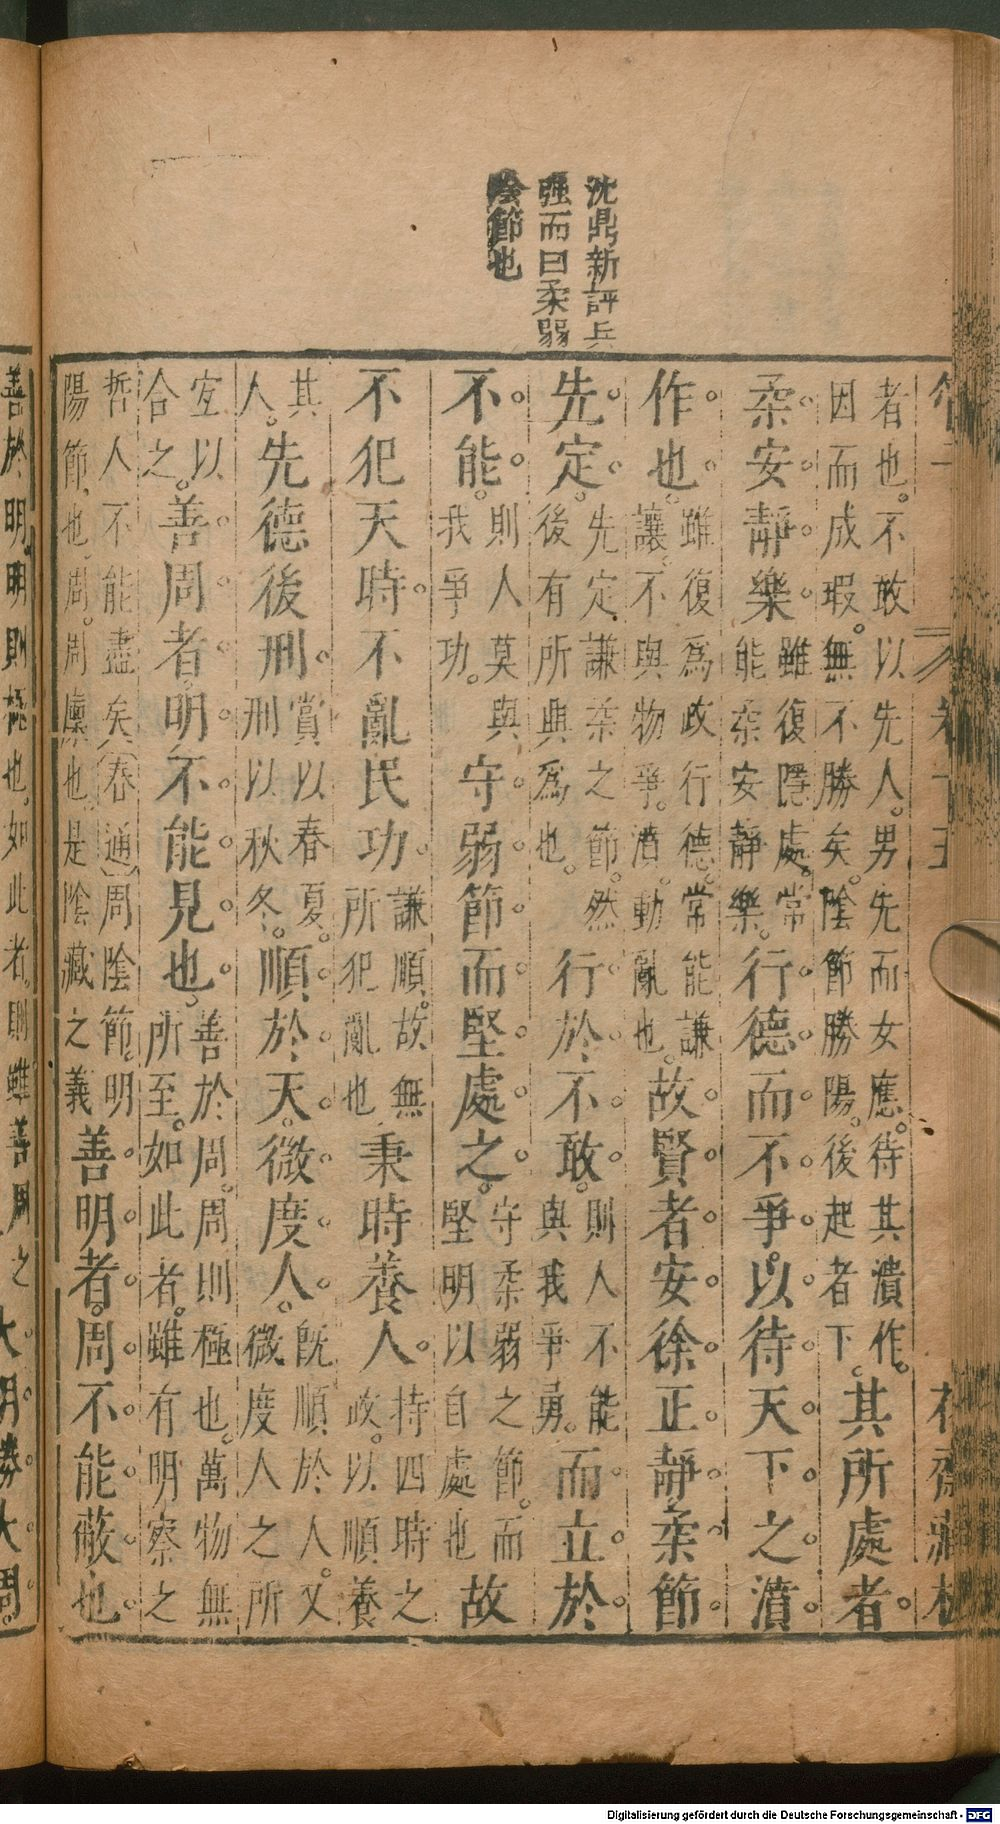 沈鼎新評兵
强而曰柔弱
陰節也
者也。不敢以先人。男先而女應。待其濆作。
因而成瑕。無不勝矣。陰節勝陽。後起者下。
其所處者。
柔安靜樂。
雖復隱處。常
能柔安靜樂。
行德而不爭。以待天下之濆
作也。
雖復爲政行德。常能謙
讓。不與物爭。濆動亂也。
故賢者安徐正靜。柔節
先定。
先定謙柔之節。然
後有所與爲也。
行於不敢。
則人不能
與我爭勇。
而立於
不能。
則人莫與
我爭功。
守弱節而堅處之。
守柔弱之節。而
堅明以自處也
故
不犯天時。不亂民功。
謙順。故無
所犯亂也
秉時養人。
持四時之
政。以順養
其
人。
先德後刑。
賞以春夏。
刑以秋冬。
順於天。微度人。
旣順於人。又
微度人之所
宐以
合之。
善周者。明不能見也。
善於周。周則極也。萬物無
所至。如此者。雖有明察之
哲人不能盡矣(春通)周陰節。明
陽節也。周。周廩也。是陰藏之義
善明者。周不能蔽也。
善於明。明則極也。如此者。則雖善周之
大明勝大周。
Digitalisierung gefördert durch die Deutsche Forschungsgemeinschaft - DFG